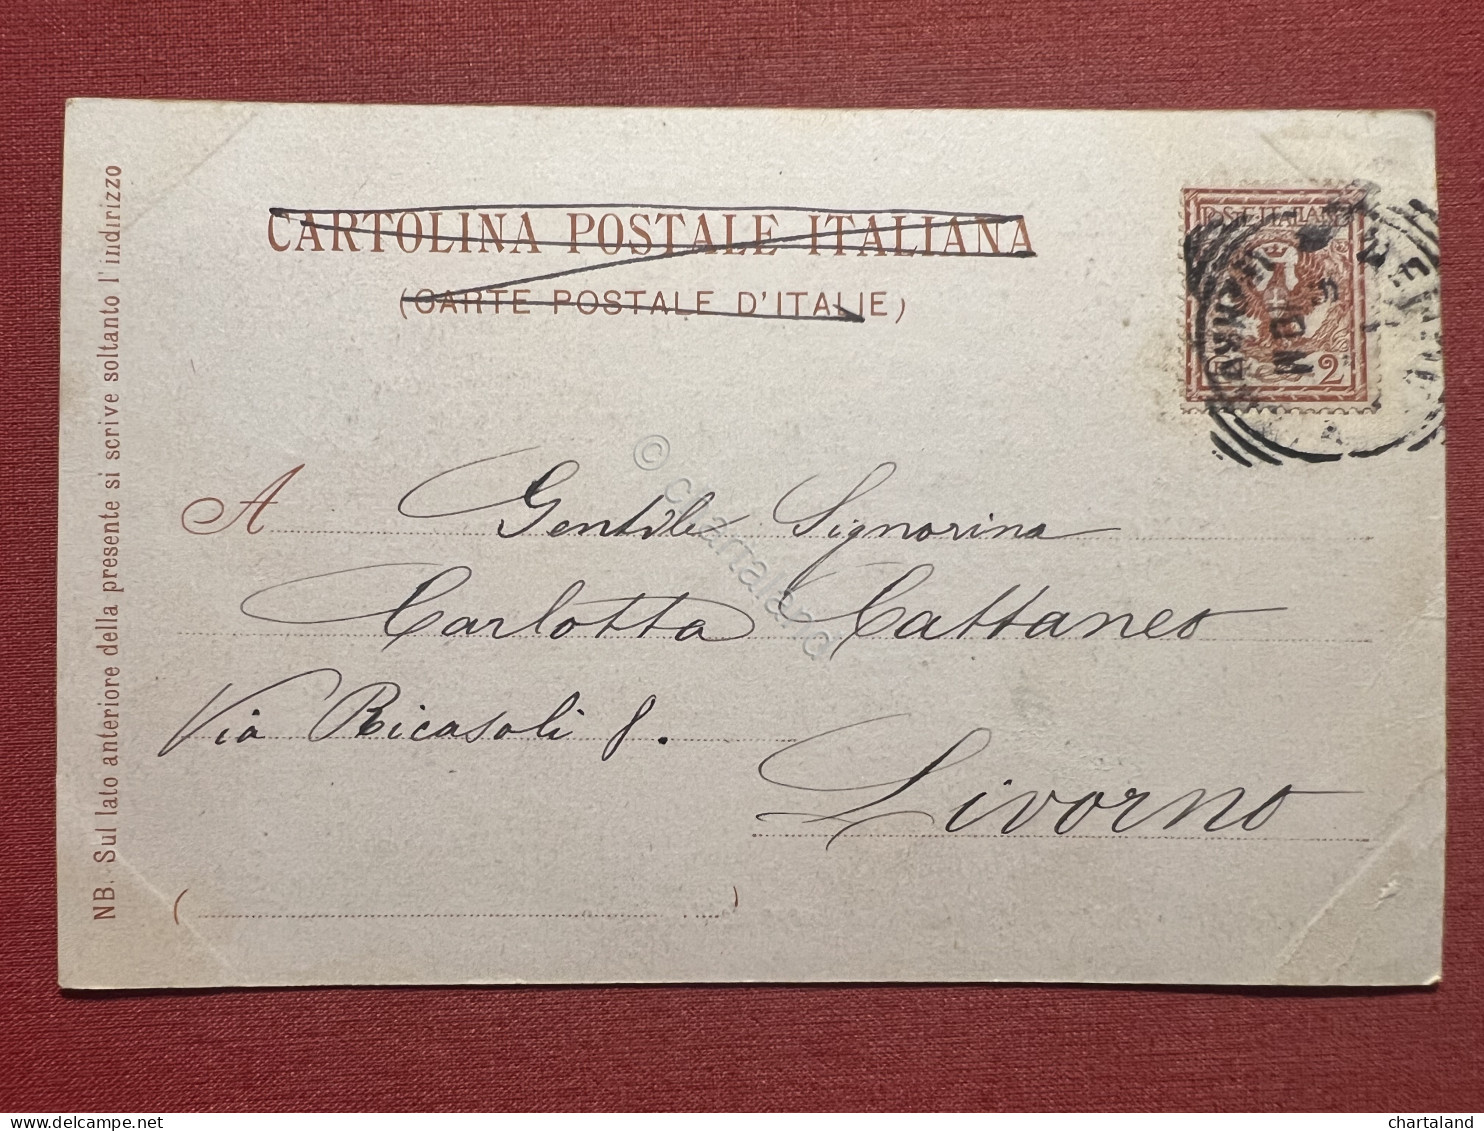 CARTOLINA POSTALE ITALIANA
(CARTE POSTALE D'ITALIE)
POSTE ITALIANE
2
A Gentile Signorina
Carlotta Cattaneo
Via Ricasoli 8.
Livorno
NB. Sul lato anteriore della presente si scrive soltanto l'indirizzo
© chartaland
chartaland
delcampe.net